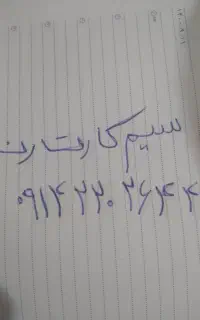 سیم کارت رند
۰۹۱۴۲۲۰۲۶۴۴